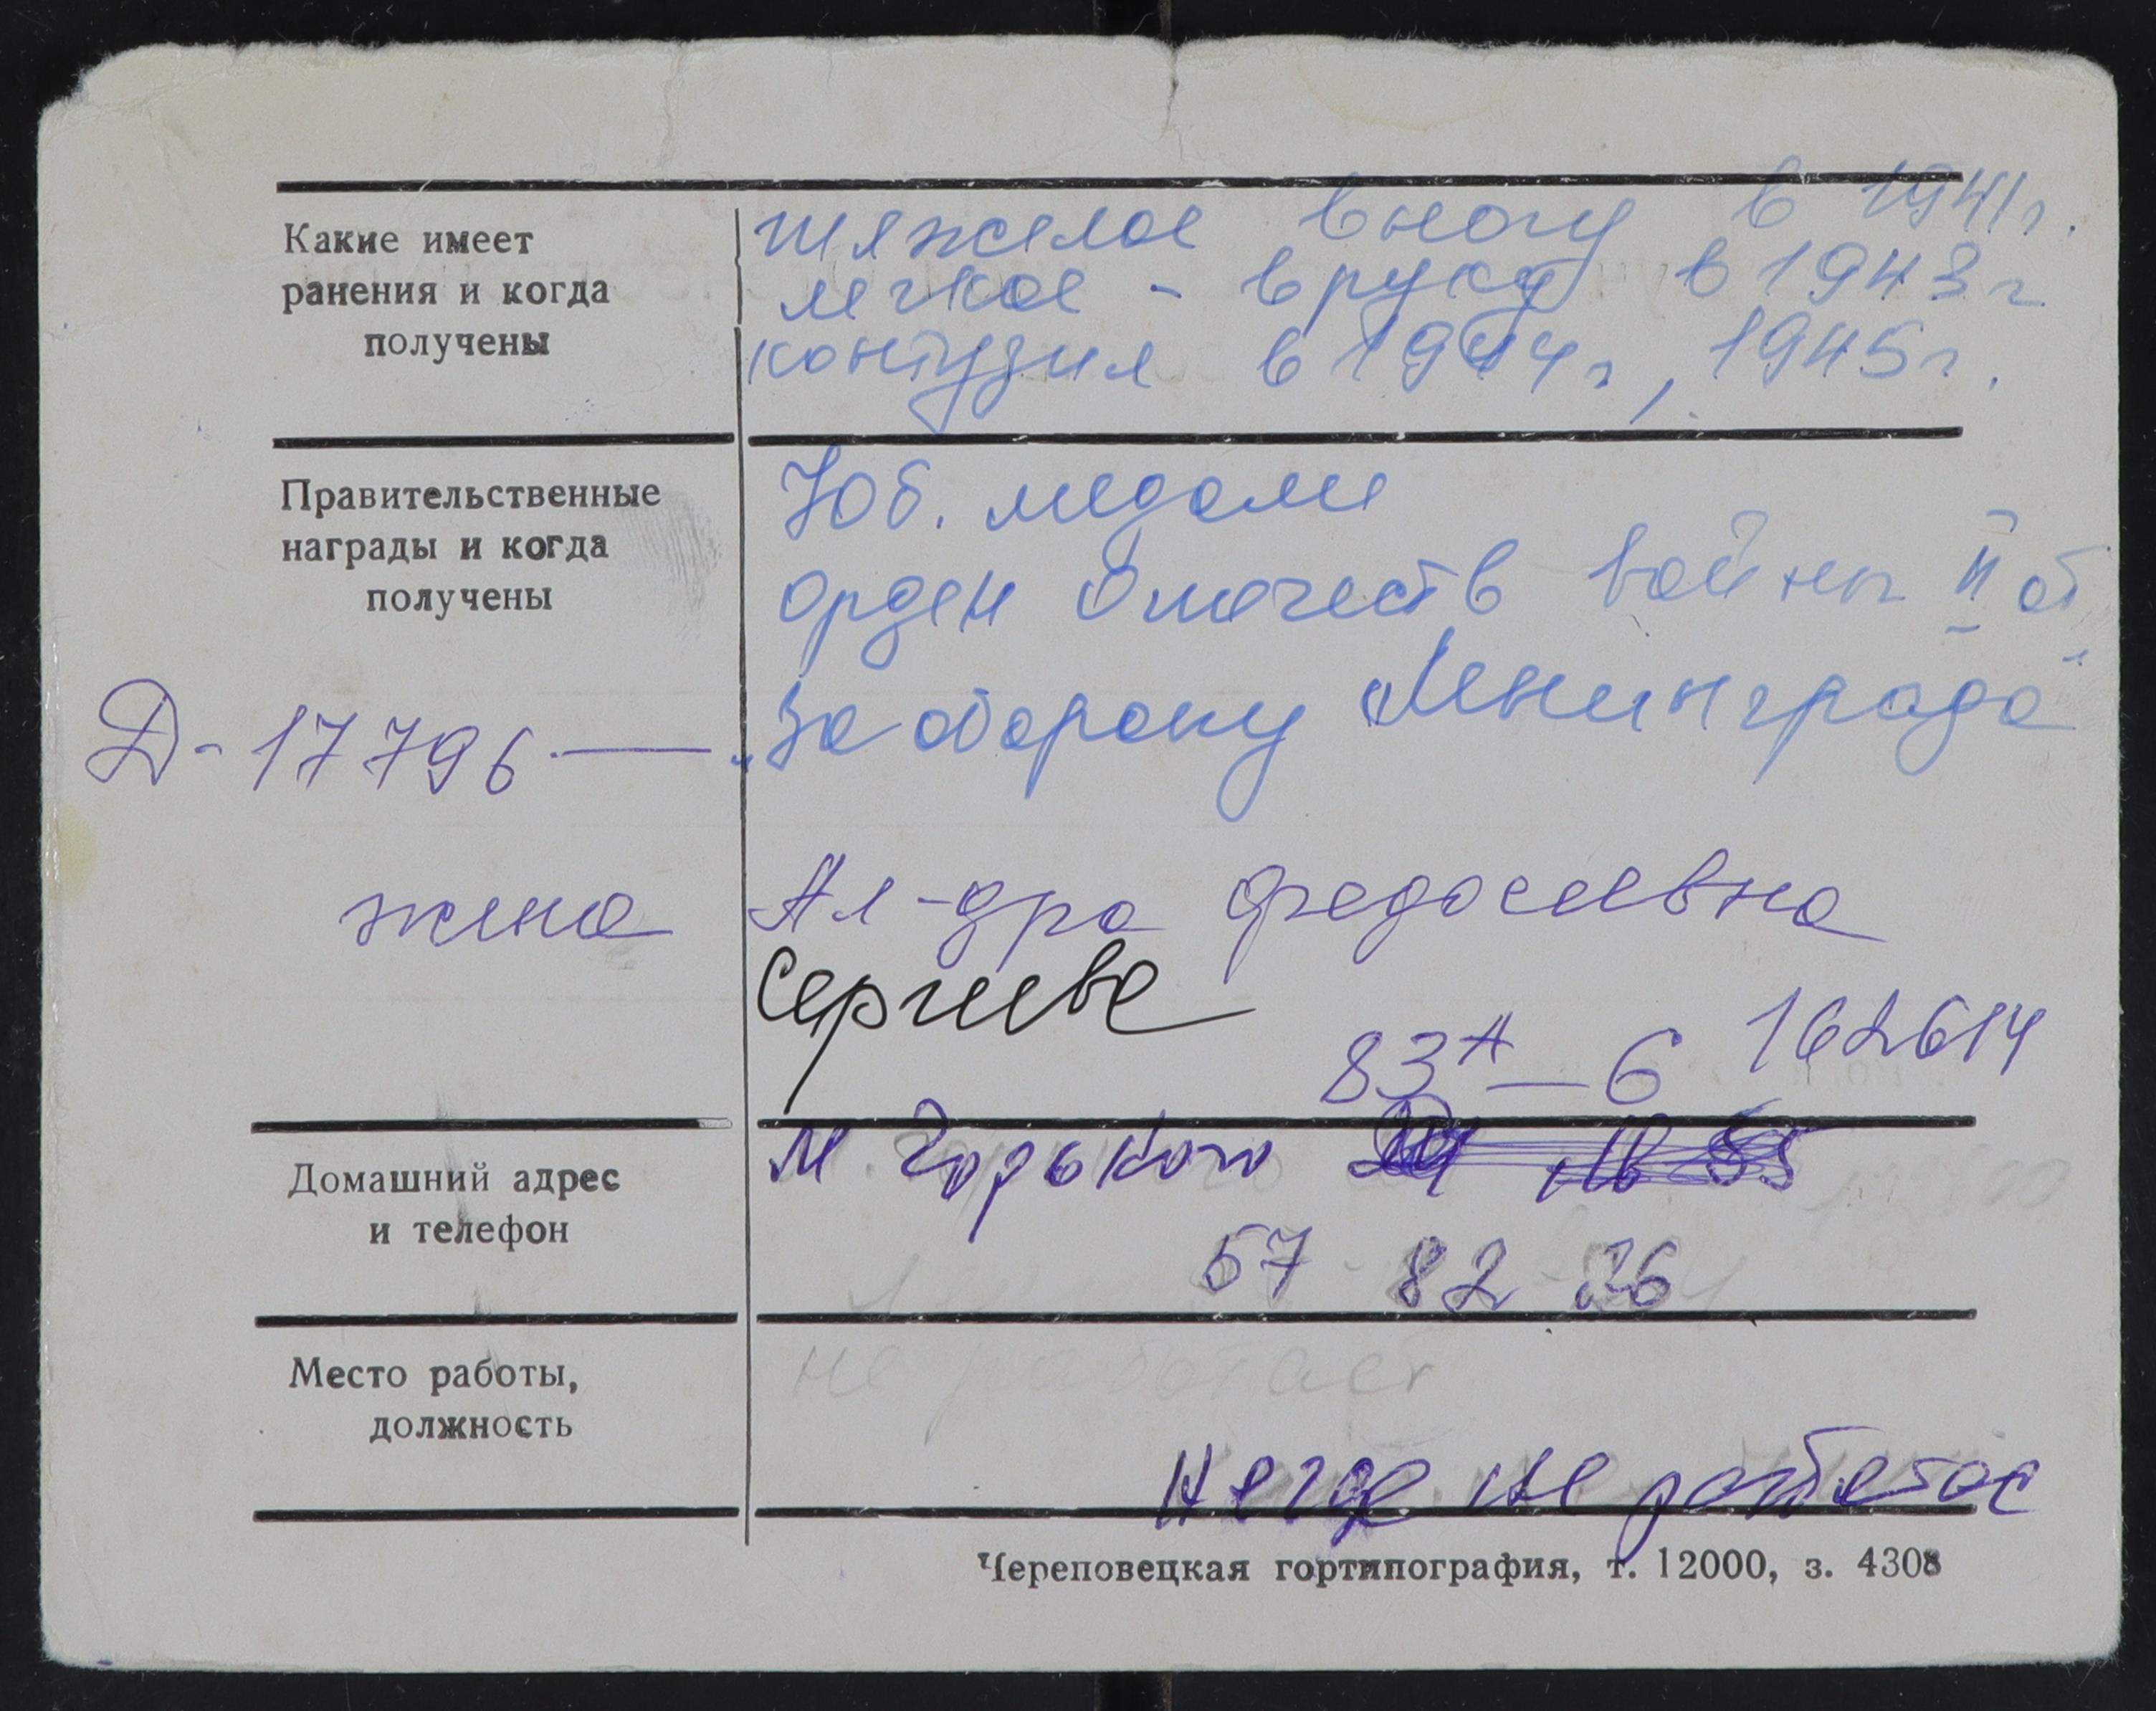 Какие имеет
ранения и когда
получены
тяжелое в ногу в 1941г.
легкое - в руку в 1943г
контузия в 1944г, 1945г.
Правительственные
награды и когда
получены
Юб. медали
орден Отечеств войны II ст
Д-17796 — „За оборону Ленинграда"
жена Ал-дра Федосеевна
Сергеева
83А — 6 162614
Домашний адрес
и телефон
М Горького
57 82 26
Место работы,
должность
не работает
Негде не работает
Череповецкая гортипография, т. 12000, з. 4308